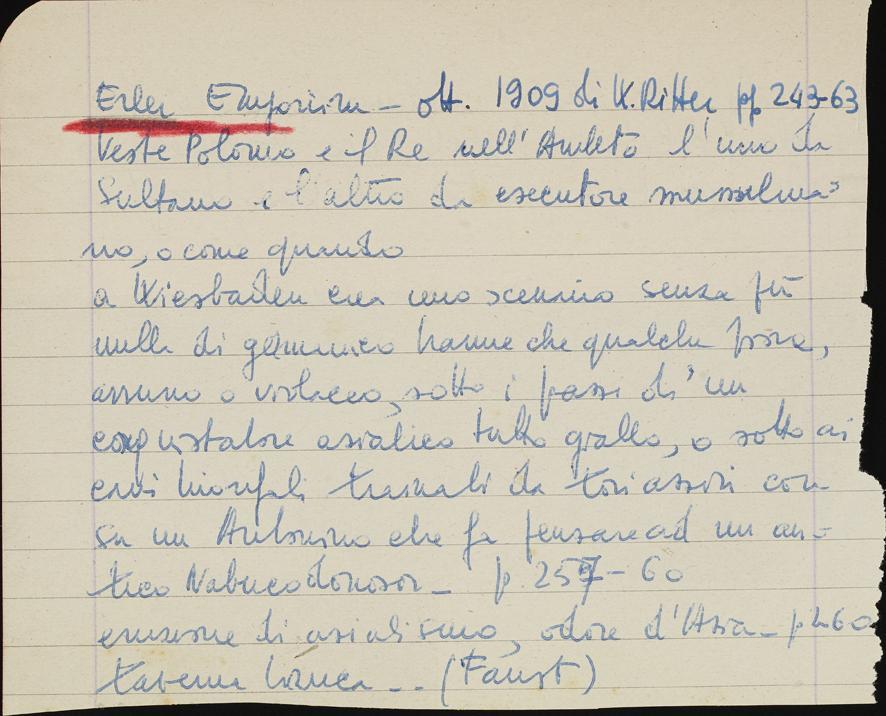 Erler Emporium – ott. 1909 di W. Ritter pp 243-63
Veste Polonio e il Re nell'Amleto l'uno da
Sultano e l'altro da esecutore musulma=
no, o come quando
a Wiesbaden era uno scenario senza più
nulla di germanico che qualche
azzurro o violaceo, sotto i passi d'un
conquistatore asiatico tutto giallo, o sotto ai
carri trionfali trainati da tori assiri con
su un Antonino che fa pensare ad un an=
tico Nabucodonosor – p. 257-60
di asiatismo, odore d'Asia – p 260
taverna ... (Faust)